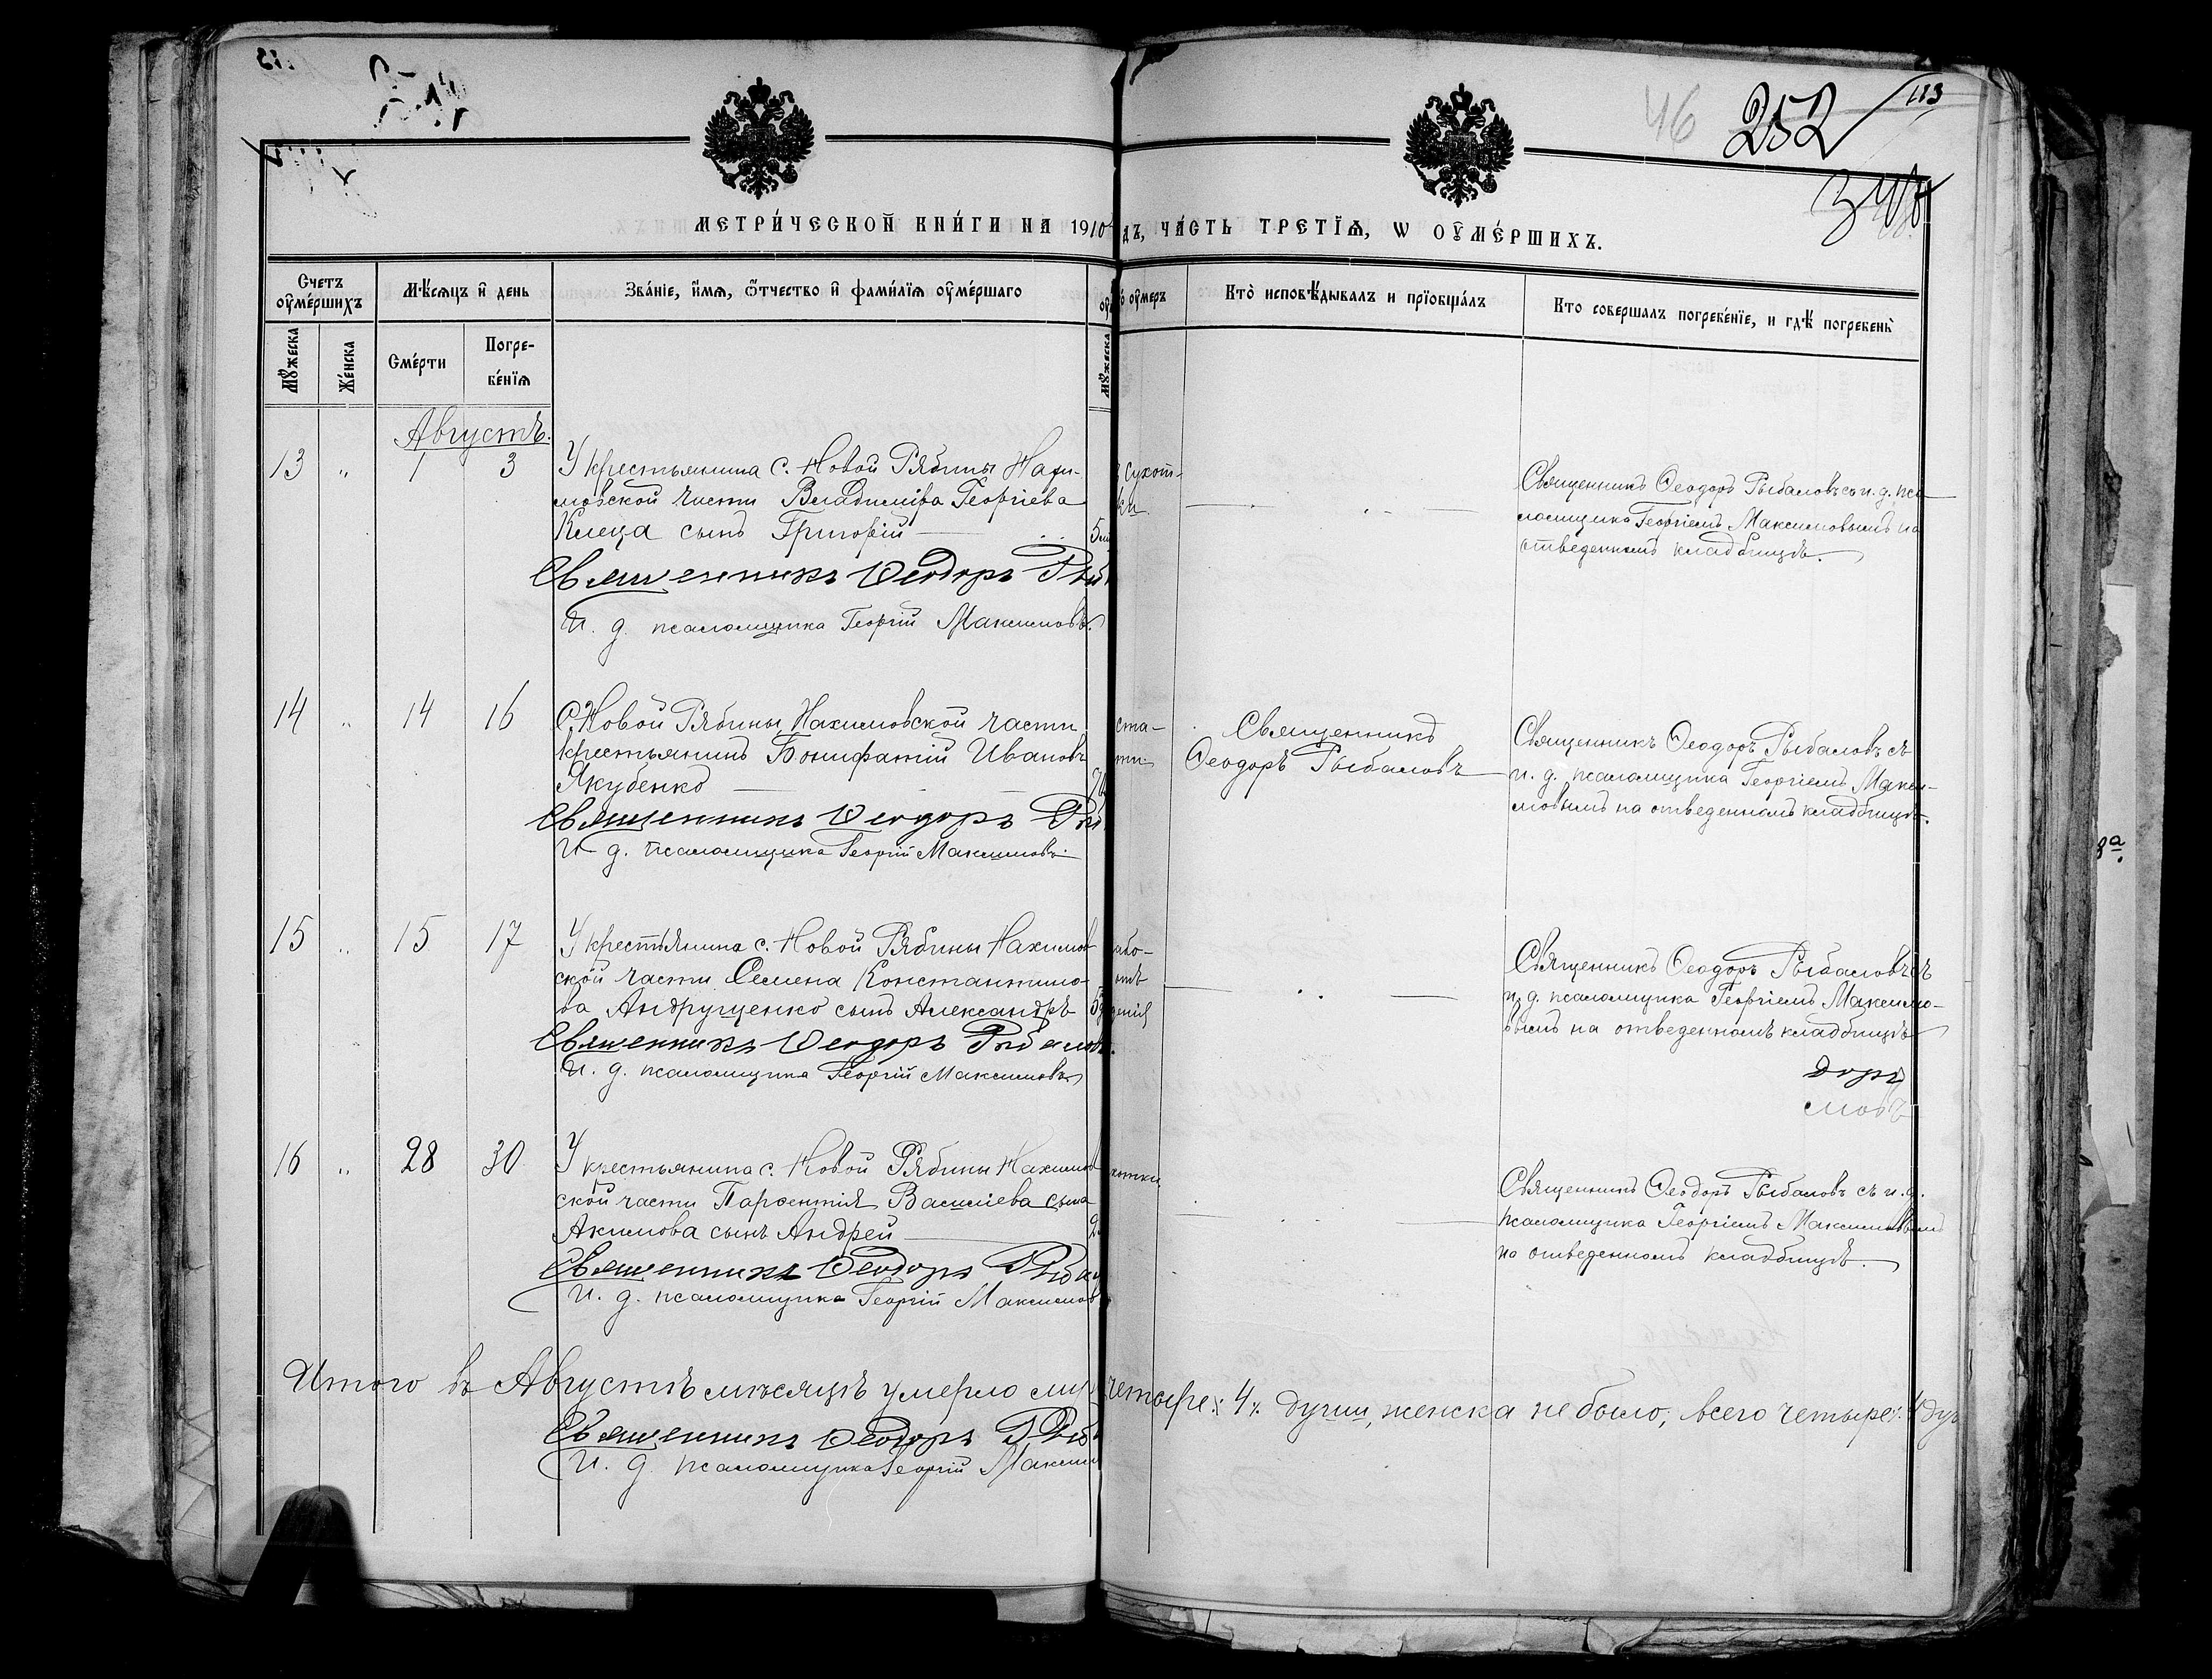 46 252 113
МЕТРИ́ЧЕСКОЙ КНИ́ГИ НА 1910 дъ, ЧА́СТЬ ТРЕТЇѦ, Ѡ ОУ҆МЕ́РШИХЪ.
Счетъ оу҆ме́ршихъ
Мѣ́сяцъ и҆ день
Зва́нїе, и҆́мѧ, ѻ҆́тчество и҆ фами́лїѧ оу҆ме́ршаго
оу҆меръ
Кто̀ исповѣ́дывалъ и прїобща́лъ
Кто совершалъ погребе́нїе, и гдѣ́ погребены̀
Мꙋ́жеска
Же́нска
Сме́рти
Погре-
бе́нїѧ
Мꙋ́жеска
Августъ.
13 " 1 3
У крестьянина с. Новой Рябины Нахи-
мовской части Владиміра Георгіева
Клеца сынъ Григорій
Священникъ Ѳеодоръ
И. д. псаломщика Георгій Максимовъ.
5
сухот-
ки
Священникъ Ѳеодоръ Рыбаловъ съ и. д. пса-
ломщика Георгіемъ Максимовымъ на
отведенномъ кладбищѣ.
14 " 14 16
С. Новой Рябины, Нахимовской части
крестьянинъ Бонифатій Ивановъ
Якубенко
Священникъ Ѳеодоръ
И. д. псаломщика Георгій Максимовъ.
Священникъ
Ѳеодоръ Рыбаловъ
Священникъ Ѳеодоръ Рыбаловъ съ
и. д. псаломщика Георгіемъ Макси-
мовымъ на отведенномъ кладбищѣ.
15 " 15 17
У крестьянина с. Новой Рябины Нахимов
ской части Семена Константино-
ва Андрущенко сынъ Александръ
Священникъ Ѳеодоръ Рыбаловъ.
И. д. псаломщика Георгій Максимовъ
Священникъ Ѳеодоръ Рыбаловъ съ
и. д. псаломщика Георгіемъ Максимо-
вымъ на отведенномъ кладбищѣ
доръ
мовъ
16 " 28 30
У крестьянина с. Новой Рябины Нахимов
ской части Парфентія Василіева сына
Акимова сынъ Андрей
Священникъ Ѳеодоръ
И. д. псаломщика Георгій Максимов
Священникъ Ѳеодоръ Рыбаловъ съ и. д.
псаломщика Георгіемъ Максимовымъ
на отведенномъ кладбищѣ.
Итого въ Августѣ мѣсяцѣ умерло му четыре 4 души, женска не было, всего четыре 4 ду
Священникъ Ѳеодоръ
И. д. псаломщика Георгій